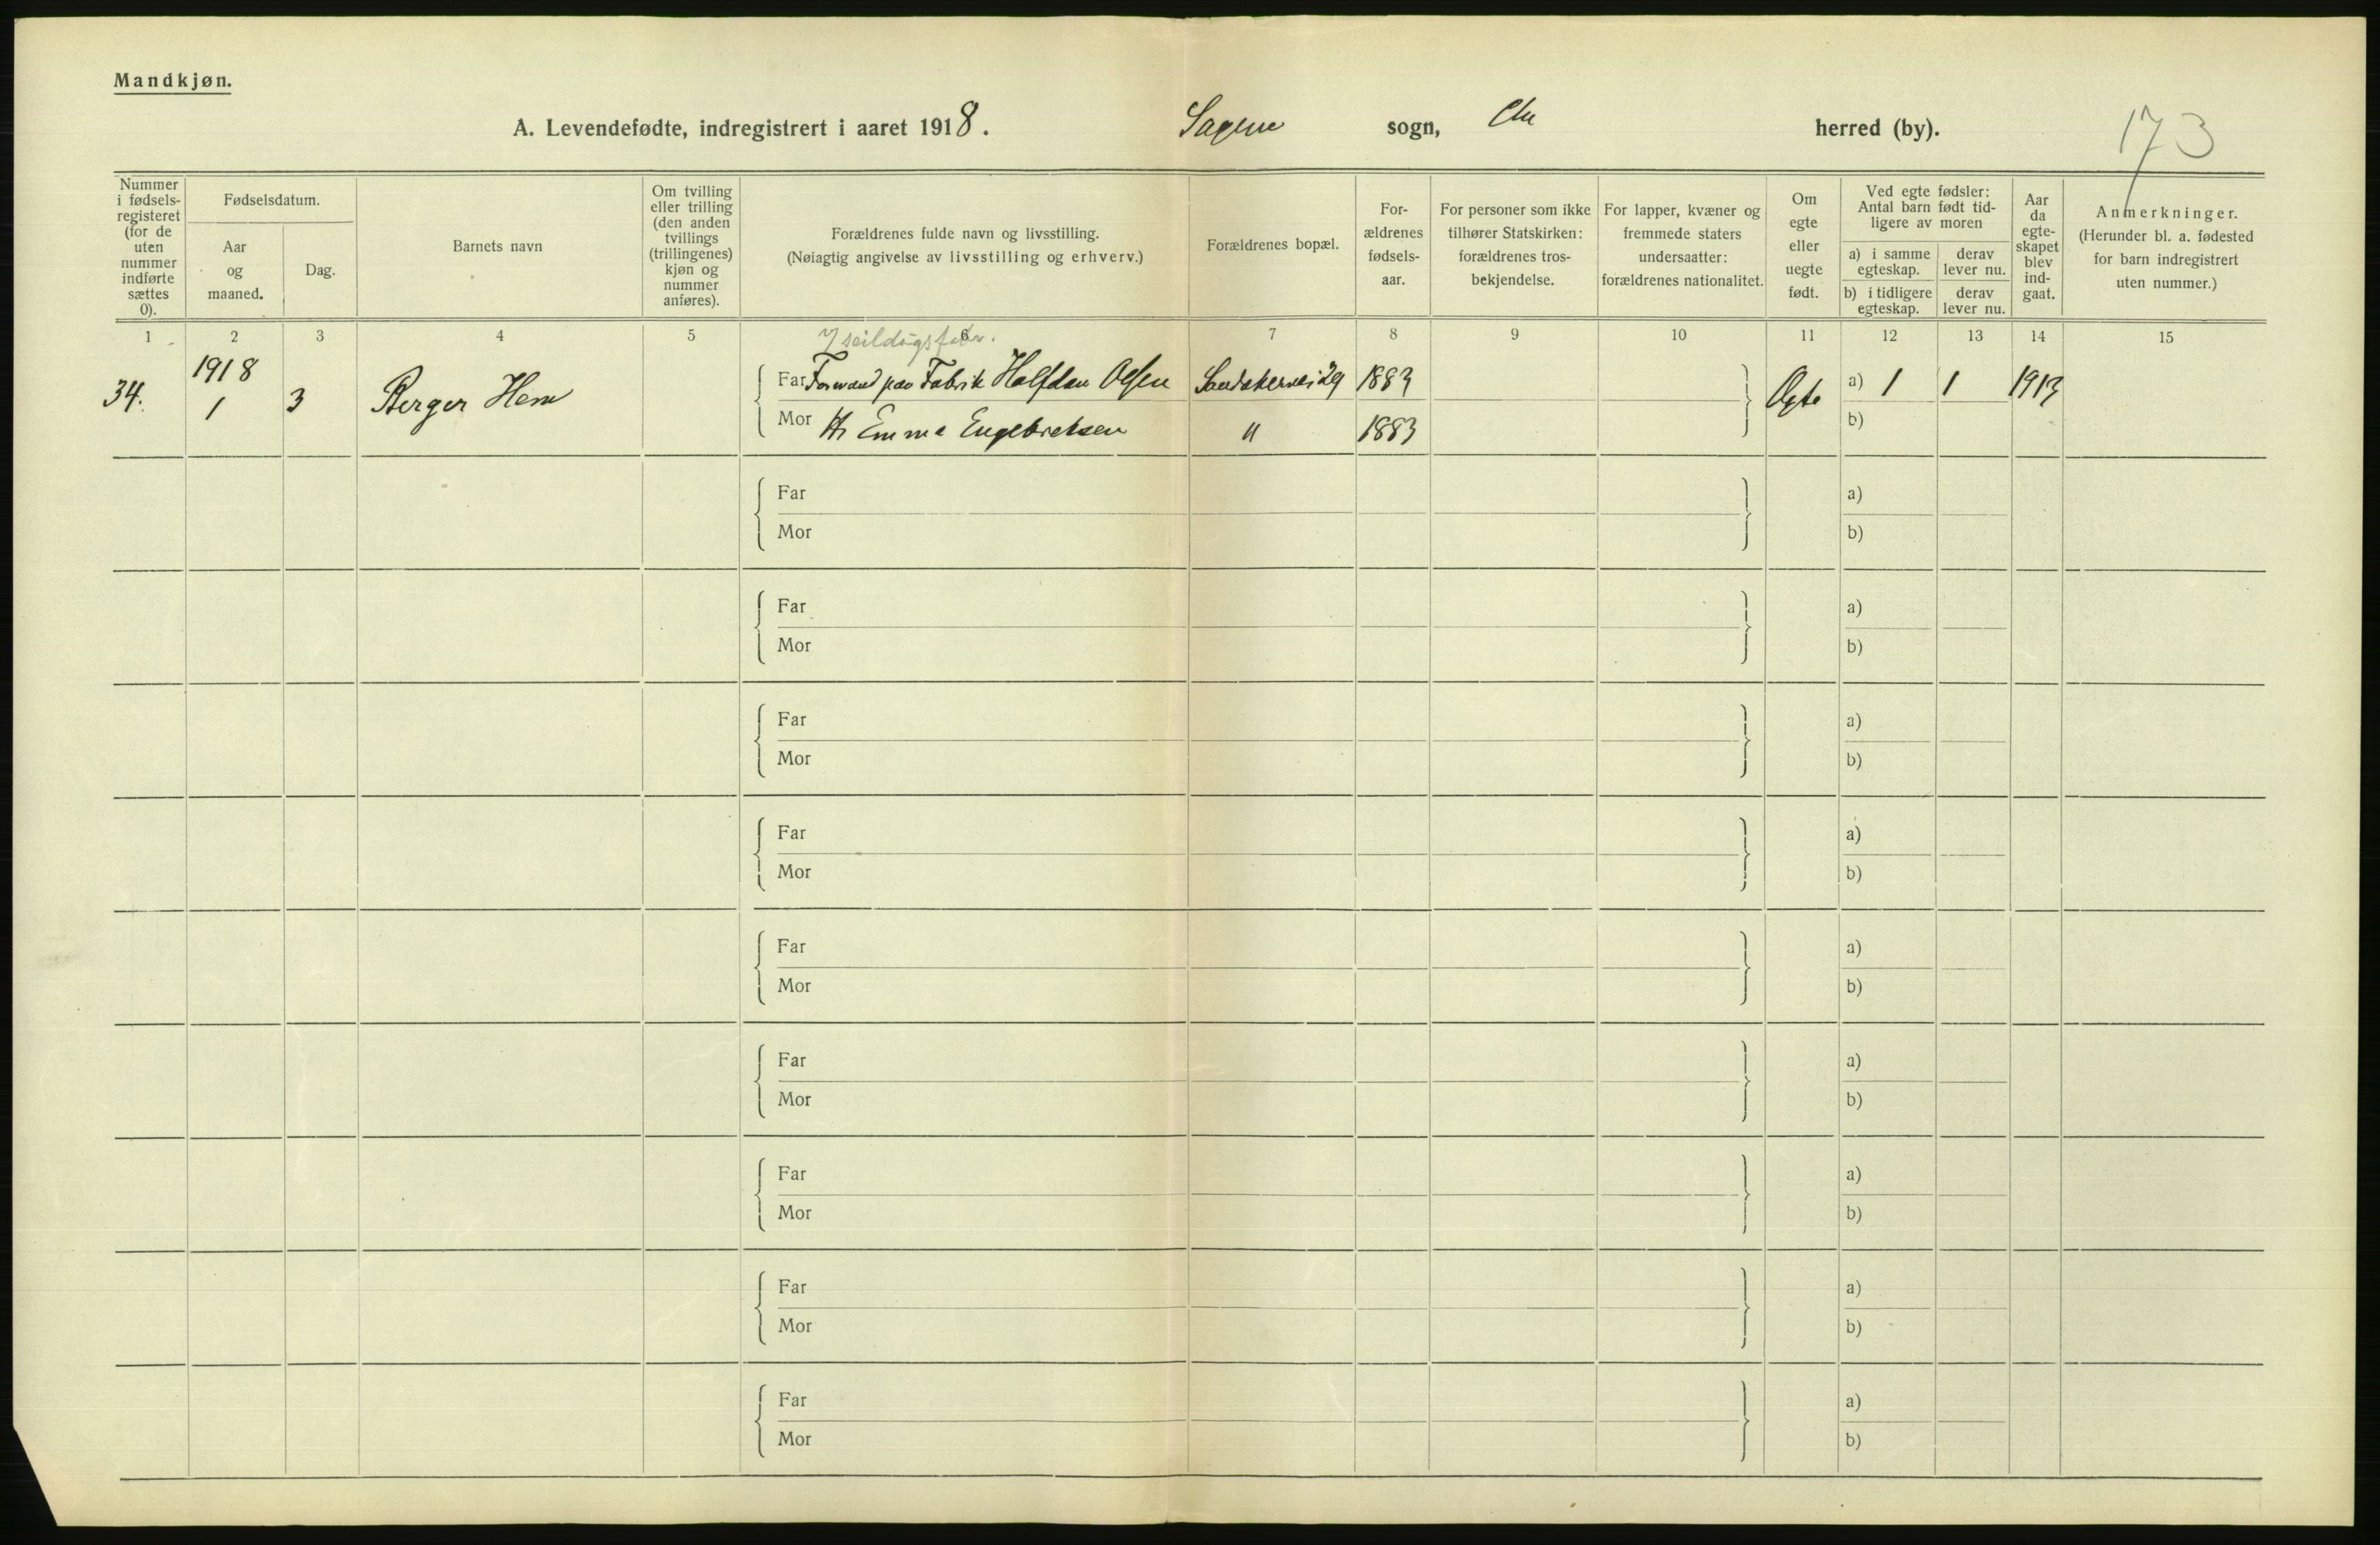 Mandkjøn.
A. Levendefødte, indregistrert i aaret 1918. Sagene sogn, Chr herred (by).
173
Nummer i fødsels-registeret (for de uten nummer indførte sættes 0).
Fødselsdatum.
Aar og maaned.
Dag.
Barnets navn
Om tvilling eller trilling (den anden tvillings (trillingenes) kjøn og nummer anføres).
Forældrenes fulde navn og livsstilling.
(Nøiagtig angivelse av livsstilling og erhverv.)
Forældrenes bopæl.
For-ældrenes fødsels-aar.
For personer som ikke tilhører Statskirken: forældrenes tros-bekjendelse.
For lapper, kvæner og fremmede staters undersaatter: forældrenes nationalitet.
Om egte eller uegte født.
Ved egte fødsler: Antal barn født tid-ligere av moren
a) i samme egteskap.
derav lever nu.
b) i tidligere egteskap.
derav lever nu.
Aar da egte-skapet blev ind-gaat.
Anmerkninger.
(Herunder bl. a. fødested for barn indregistrert uten nummer.)
1 2 3 4 5 6 7 8 9 10 11 12 13 14 15
seildugsfabr.
34. 1918 1 3 Berger Hem
Far Formand paa Fabrik Halfdan Olsen Sandakervei 29 1883 Egte a) 1 1 1913
Mor Emma Engebretsen " 1883 b)
Far a)
Mor b)
Far a)
Mor b)
Far a)
Mor b)
Far a)
Mor b)
Far a)
Mor b)
Far a)
Mor b)
Far a)
Mor b)
Far a)
Mor b)
Far a)
Mor b)